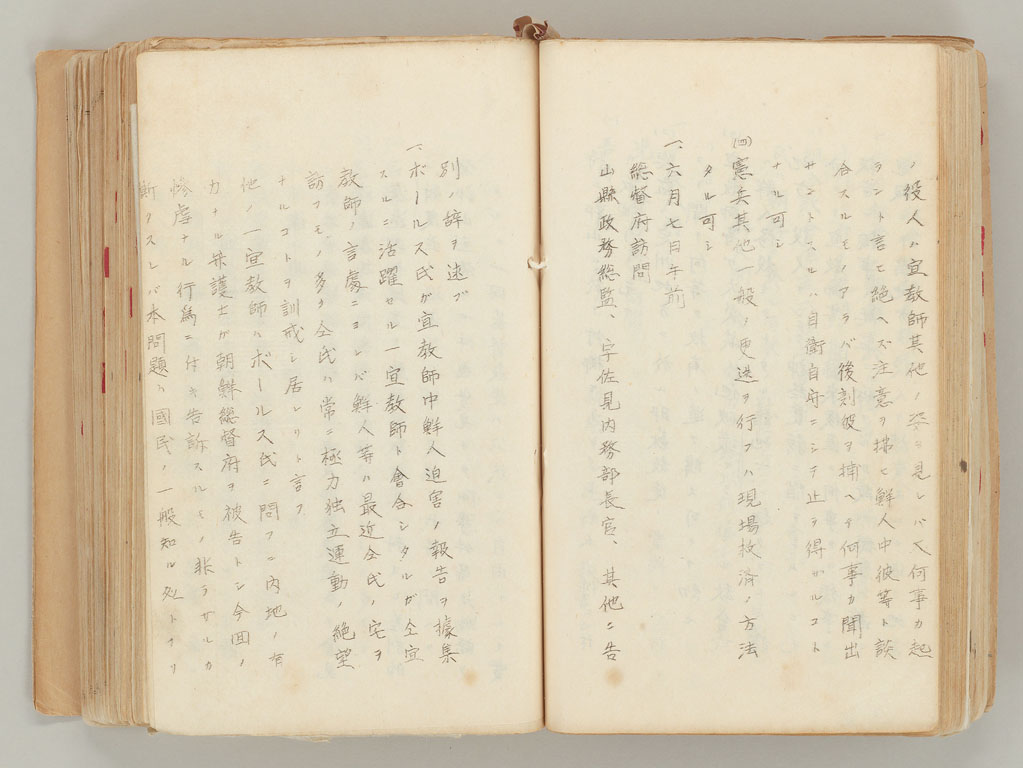 ノ役人ハ宣教師其他ノ姿ヲ見レバ又何事カ起
ラント言ヒ絶ヘズ注意ヲ拂ヒ鮮人中彼等ト談
合スルモノアラバ後刻彼ヲ捕ヘテ何事カ聞出
サントスルハ自衛自守ニシテ止ヲ得ザルコト
ナル可シ
(四)憲兵其他一般ノ更迭ヲ行フハ現場救済ノ方法
タル可シ
一、六月七日午前
總督府訪問
山縣政務総監、宇佐見内務部長官、其他ニ告
別ノ辞ヲ述ブ
一、ボールス氏ガ宣教師中鮮人迫害ノ報告ヲ據集
スルニ活躍セル一宣教師ト會合シタルガ仝宣
教師ノ言處ニヨレバ鮮人等ハ最近仝氏ノ宅ヲ
訪フモノ多ク仝氏ハ常ニ極力独立運動ノ絶望
ナルコトヲ訓戒シ居レリト言フ
他ノ一宣教師ハボールス氏ニ問フニ内地ノ有
力ナル弁護士ガ朝鮮總督府ヲ被告トシ今回ノ
惨虐ナル行為ニ付キ告訴スルモノ非ラザルカ
斯クスレバ本問題ハ國民ノ一般知ル処トナリ